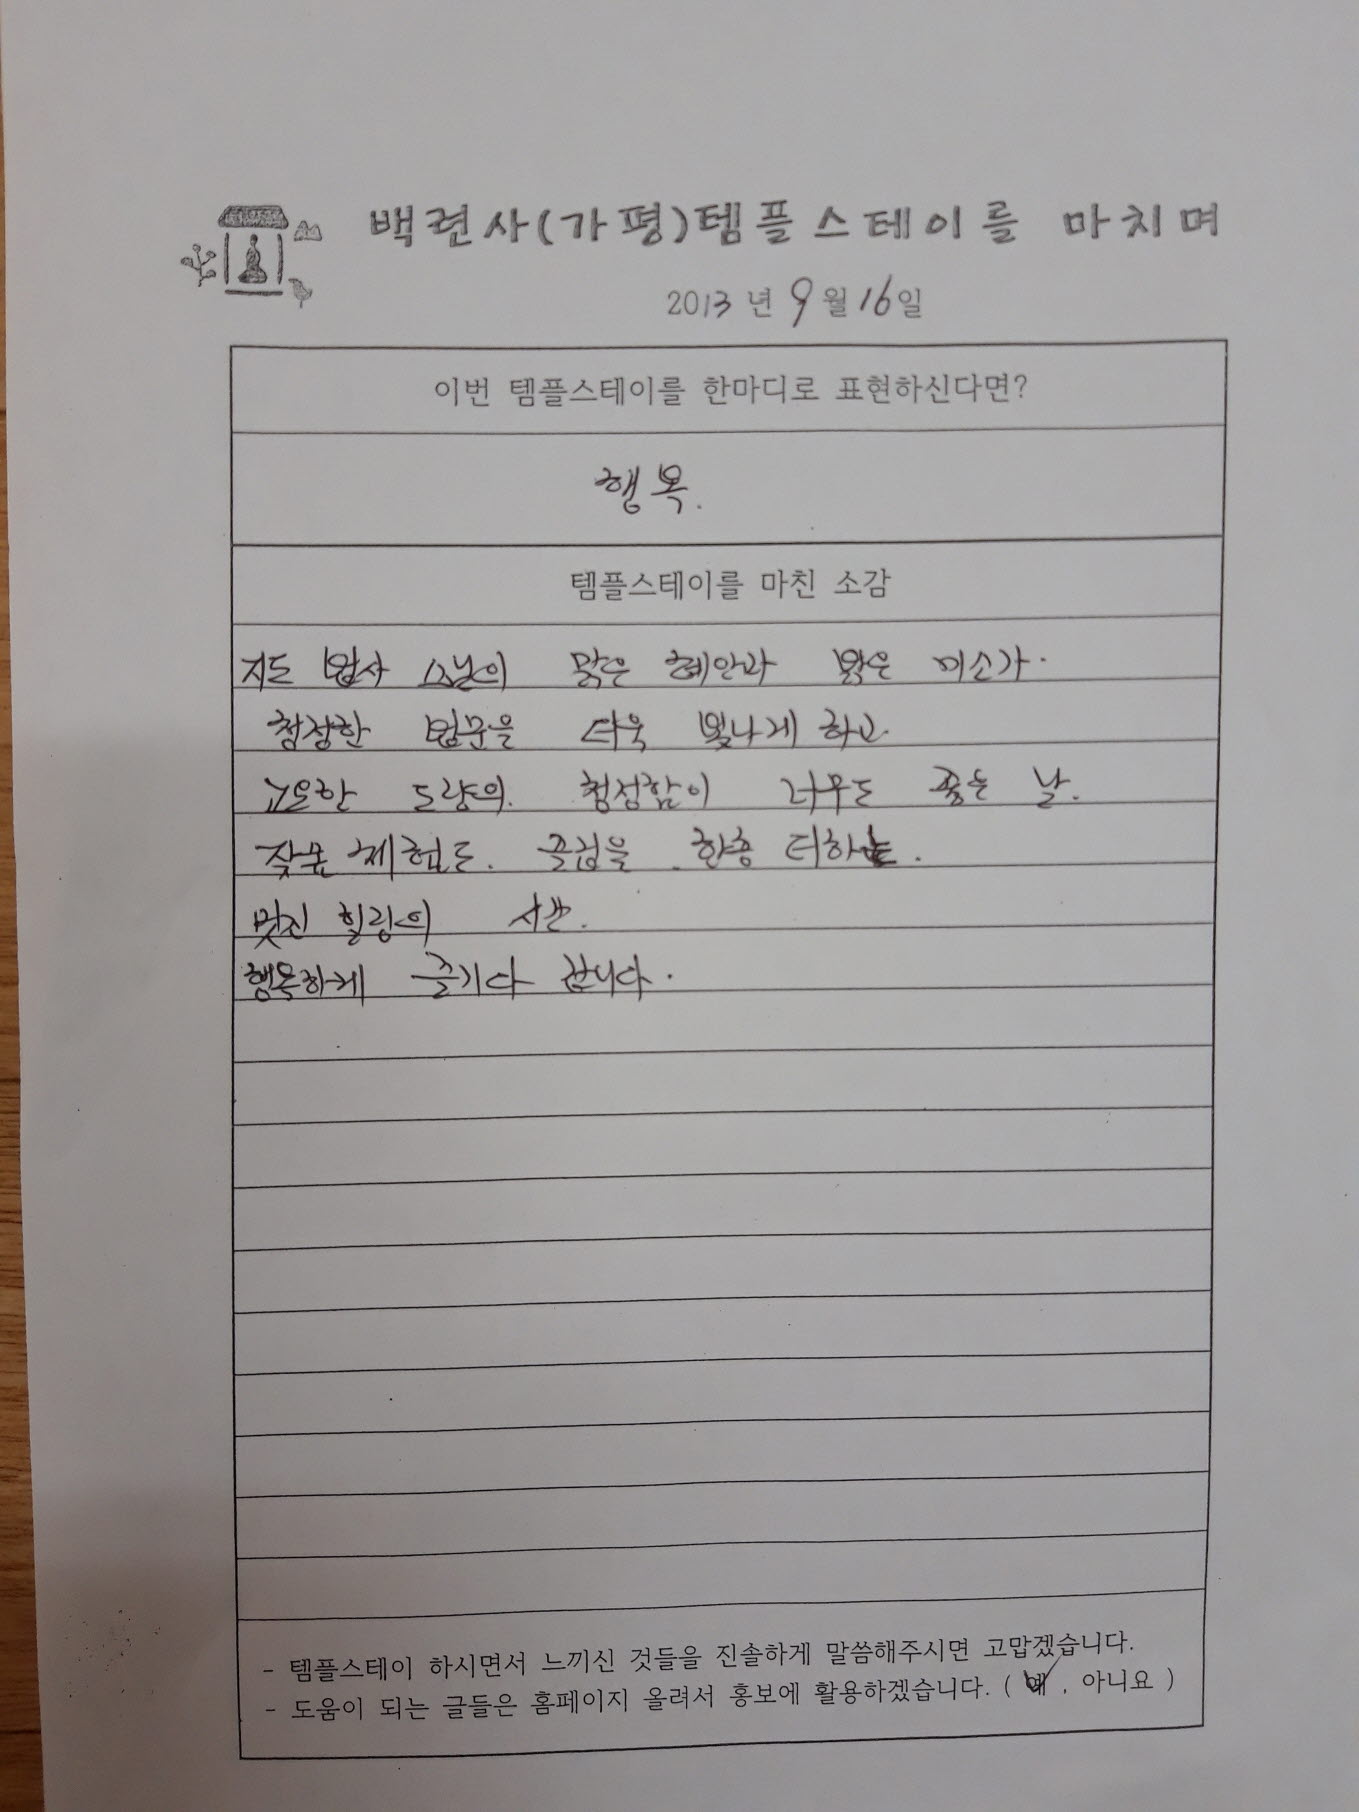 백련사(가평)템플스테이를 마치며
2013년 9월 16일
이번 템플스테이를 한마디로 표현하신다면?
행복.
템플스테이를 마친 소감
지도 법사 스님의 맑은 혜안과 밝은 미소가.
청정한 법문을 더욱 빛나게 하고.
고요한 도량의. 청정함이 너무도 좋은 날.
잦은 체험도. 즐검을 한층 더하는.
멋진 힐링의 시간.
행복하게 즐기다 갑니다.
- 템플스테이 하시면서 느끼신 것들을 진솔하게 말씀해주시면 고맙겠습니다.
- 도움이 되는 글들은 홈페이지 올려서 홍보에 활용하겠습니다. ( 예 , 아니요 )